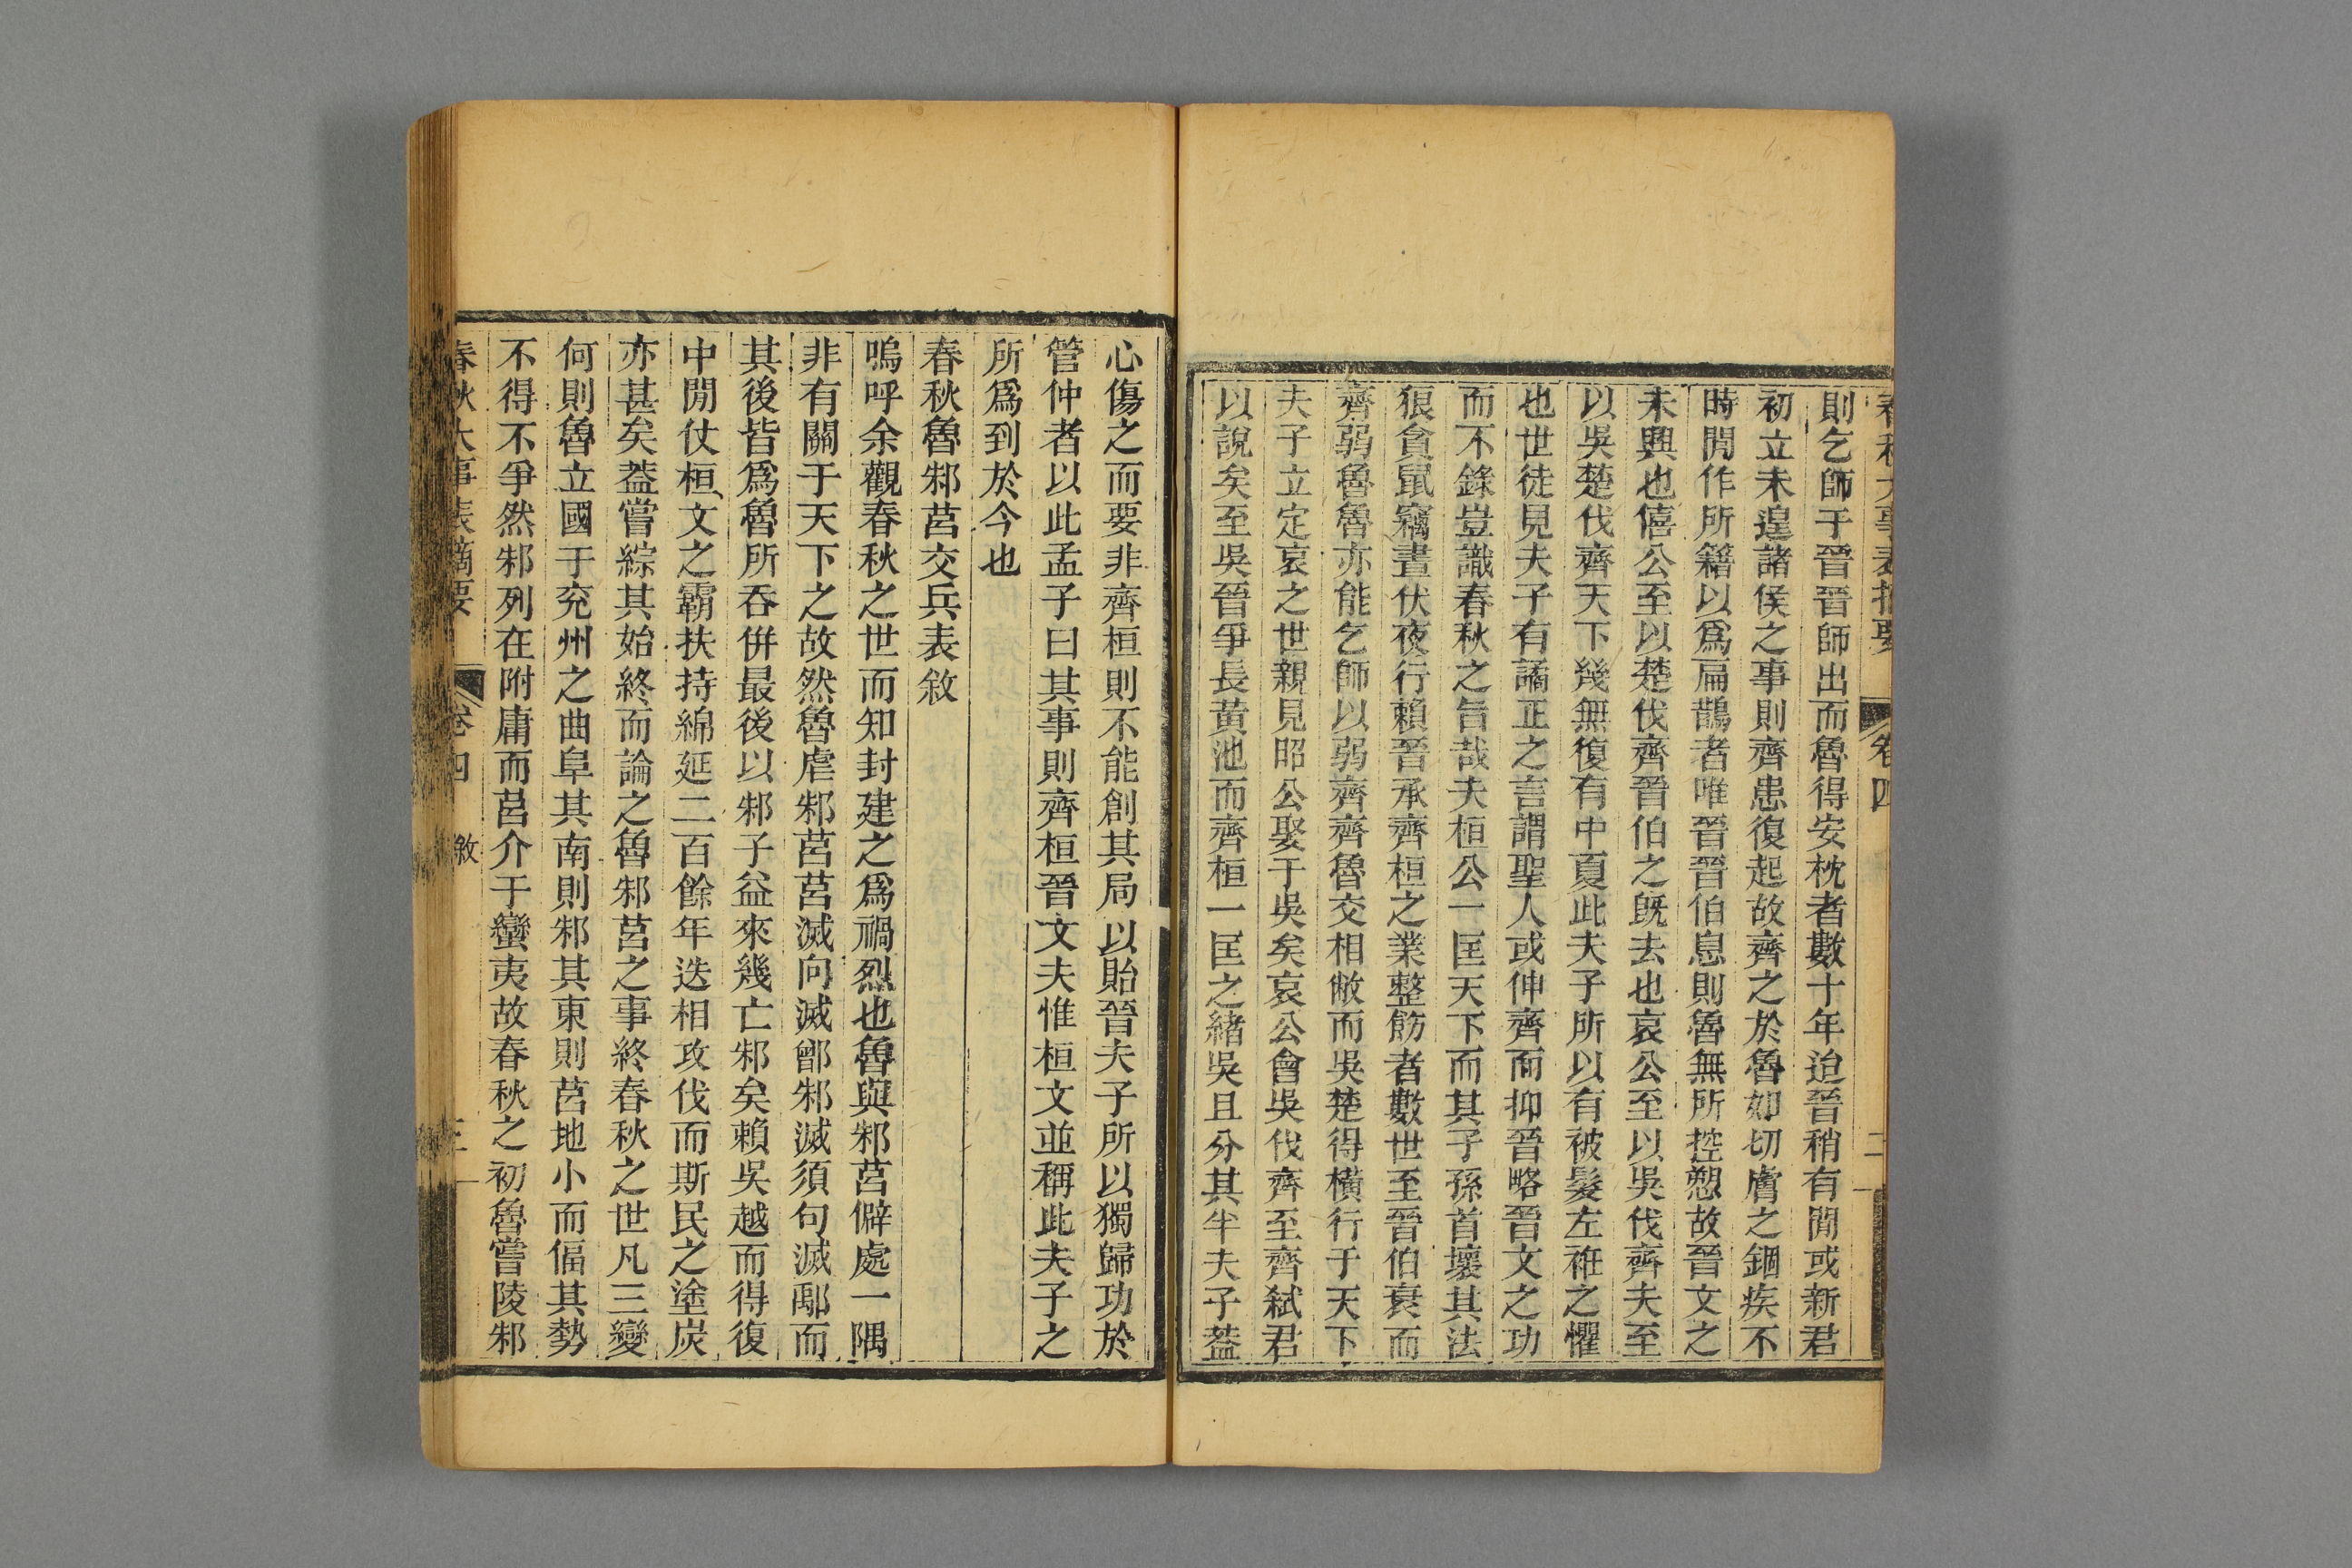 春秋大事表摘要 卷四 二
則乞師于晉晉師出而魯得安枕者數十年迨晉稍有閒或新君
初立未遑諸侯之事則齊患復起故齊之於魯如切膚之錮疾不
時閒作所籍以爲扁鵲者唯晉晉伯息則魯無所控愬故晉文之
未興也僖公至以楚伐齊晉伯之旣去也哀公至以吳伐齊夫至
以吳楚伐齊天下幾無復有中夏此夫子所以有被髮左衽之懼
也世徒見夫子有譎正之言謂聖人或伸齊而抑晉略晉文之功
而不錄豈識春秋之旨哉夫桓公一匡天下而其子孫首壞其法
狠貪鼠竊晝伏夜行賴晉承齊桓之業整飭者數世至晉伯衰而
齊弱魯魯亦能乞師以弱齊齊魯交相敝而吳楚得橫行于天下
夫子立定哀之世親見昭公娶于吳矣哀公會吳伐齊至齊弑君
以說矣至吳晉爭長黃池而齊桓一匡之緒吳且分其半夫子葢
心傷之而要非齊桓則不能創其局以貽晉夫子所以獨歸功於
管仲者以此孟子曰其事則齊桓晉文夫惟桓文並稱此夫子之
所爲到於今也
春秋魯邾莒交兵表敘
嗚呼余觀春秋之世而知封建之爲禍烈也魯與邾莒僻處一隅
非有關于天下之故然魯虐邾莒莒滅向滅鄫邾滅須句滅鄅而
其後皆爲魯所吞併最後以邾子益來幾亡邾矣賴吳越而得復
中閒仗桓文之霸扶持綿延二百餘年迭相攻伐而斯民之塗炭
亦甚矣葢嘗綜其始終而論之魯邾莒之事終春秋之世凡三變
何則魯立國于兖州之曲阜其南則邾其東則莒地小而偪其勢
不得不爭然邾列在附庸而莒介于蠻夷故春秋之初魯嘗陵邾
春秋大事表摘要 卷四 敘 三